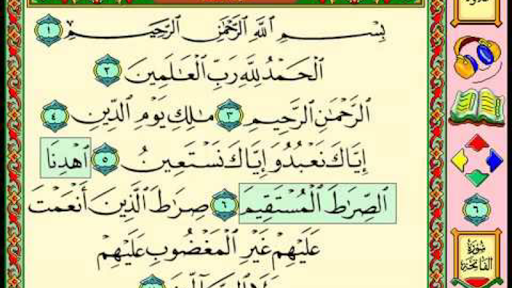 بِسْمِ ٱللَّهِ ٱلرَّحْمَٰنِ ٱلرَّحِيمِ ١
ٱلْحَمْدُ لِلَّهِ رَبِّ ٱلْعَٰلَمِينَ ٢
ٱلرَّحْمَٰنِ ٱلرَّحِيمِ ٣ مَٰلِكِ يَوْمِ ٱلدِّينِ ٤
إِيَّاكَ نَعْبُدُ وَإِيَّاكَ نَسْتَعِينُ ٥ ٱهْدِنَا
ٱلصِّرَٰطَ ٱلْمُسْتَقِيمَ ٦ صِرَٰطَ ٱلَّذِينَ أَنْعَمْتَ
عَلَيْهِمْ غَيْرِ ٱلْمَغْضُوبِ عَلَيْهِمْ
٦
سُورَةُ
الْفَاتِحَةِ